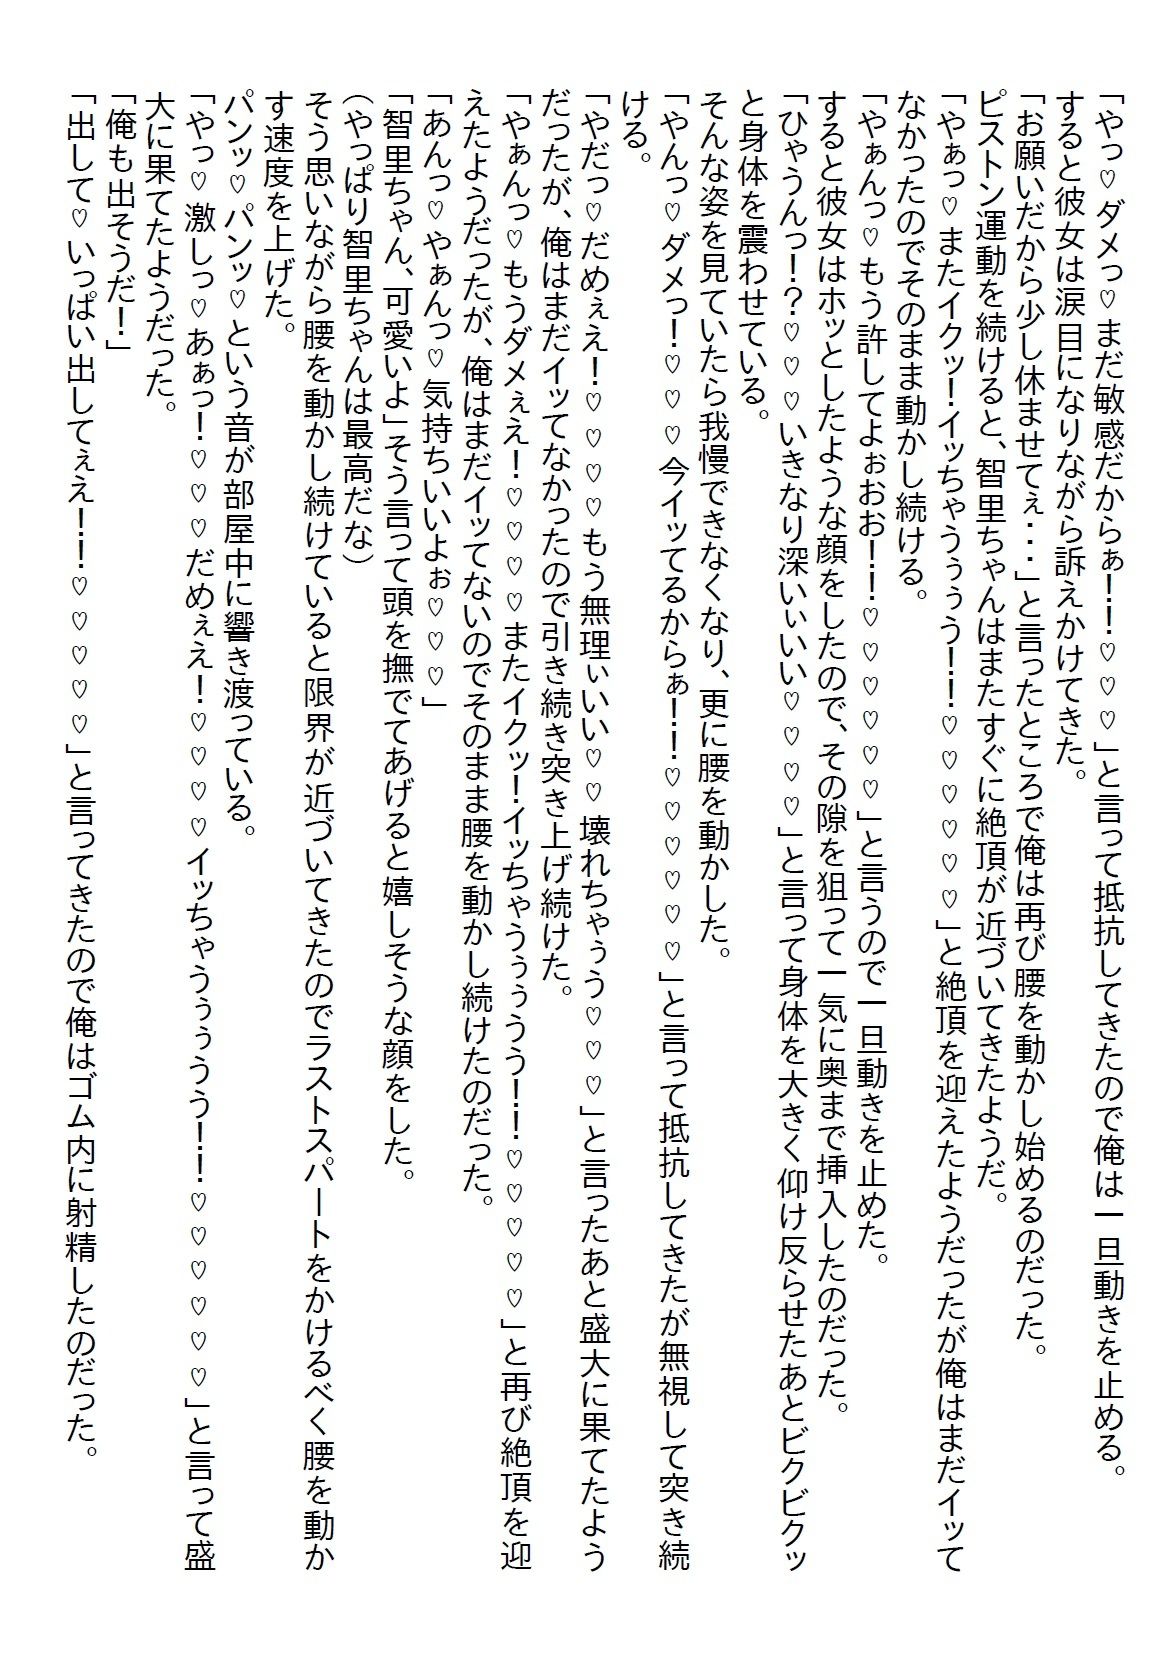 「やっ♡ダメっ♡まだ敏感だからぁ！！♡♡♡」と言って抵抗してきたので俺は一旦動きを止める。
すると彼女は涙目になりながら訴えかけてきた。
「お願いだから少し休ませてぇ・・・」と言ったところで俺は再び腰を動かし始めるのだった。
ピストン運動を続けると、智里ちゃんはまたすぐに絶頂が近づいてきたようだ。
「やぁっ♡またイクッ！イッちゃうぅぅう！！♡♡♡♡♡♡」と絶頂を迎えたようだったが俺はまだイッて
なかったのでそのまま動かし続ける。
「やぁんっ♡もう許してよぉおお！！♡♡♡♡♡♡」と言うので一旦動きを止めた。
すると彼女はホッとしたような顔をしたので、その隙を狙って一気に奥まで挿入したのだった。
「ひゃうんっ！？♡♡♡いきなり深いぃいい♡♡♡♡」と言って身体を大きく仰け反らせたあとビクビクッ
と身体を震わせている。
そんな姿を見ていたら我慢できなくなり、更に腰を動かした。
「やんっ♡ダメっ！♡♡♡今イッてるからぁ！！♡♡♡♡♡♡」と言って抵抗してきたが無視して突き続
ける。
「やだっ♡だめぇえ！♡♡♡♡もう無理ぃいい♡♡壊れちゃぅう♡♡♡」と言ったあと盛大に果てたよう
だったが、俺はまだイッてなかったので引き続き突き上げ続けた。
「やぁんっ♡もうダメぇえ！♡♡♡♡またイクッ！イッちゃうぅぅうう！！♡♡♡♡♡」と再び絶頂を迎
えたようだったが、俺はまだイッてないのでそのまま腰を動かし続けたのだった。
「あんっ♡やぁんっ♡気持ちいいよぉ♡♡♡」
「智里ちゃん、可愛いよ」そう言って頭を撫でてあげると嬉しそうな顔をした。
（やっぱり智里ちゃんは最高だな）
そう思いながら腰を動かし続けていると限界が近づいてきたのでラストスパートをかけるべく腰を動か
す速度を上げた。
パンッ♡パンッ♡という音が部屋中に響き渡っている。
「やっ♡激しっ♡あぁっ！♡♡♡だめぇえ！♡♡♡♡イッちゃうぅぅうう！！♡♡♡♡♡♡」と言って盛
大に果てたようだった。
「俺も出そうだ！」
「出して♡いっぱい出してぇえ！！♡♡♡♡♡」と言ってきたので俺はゴム内に射精したのだった。